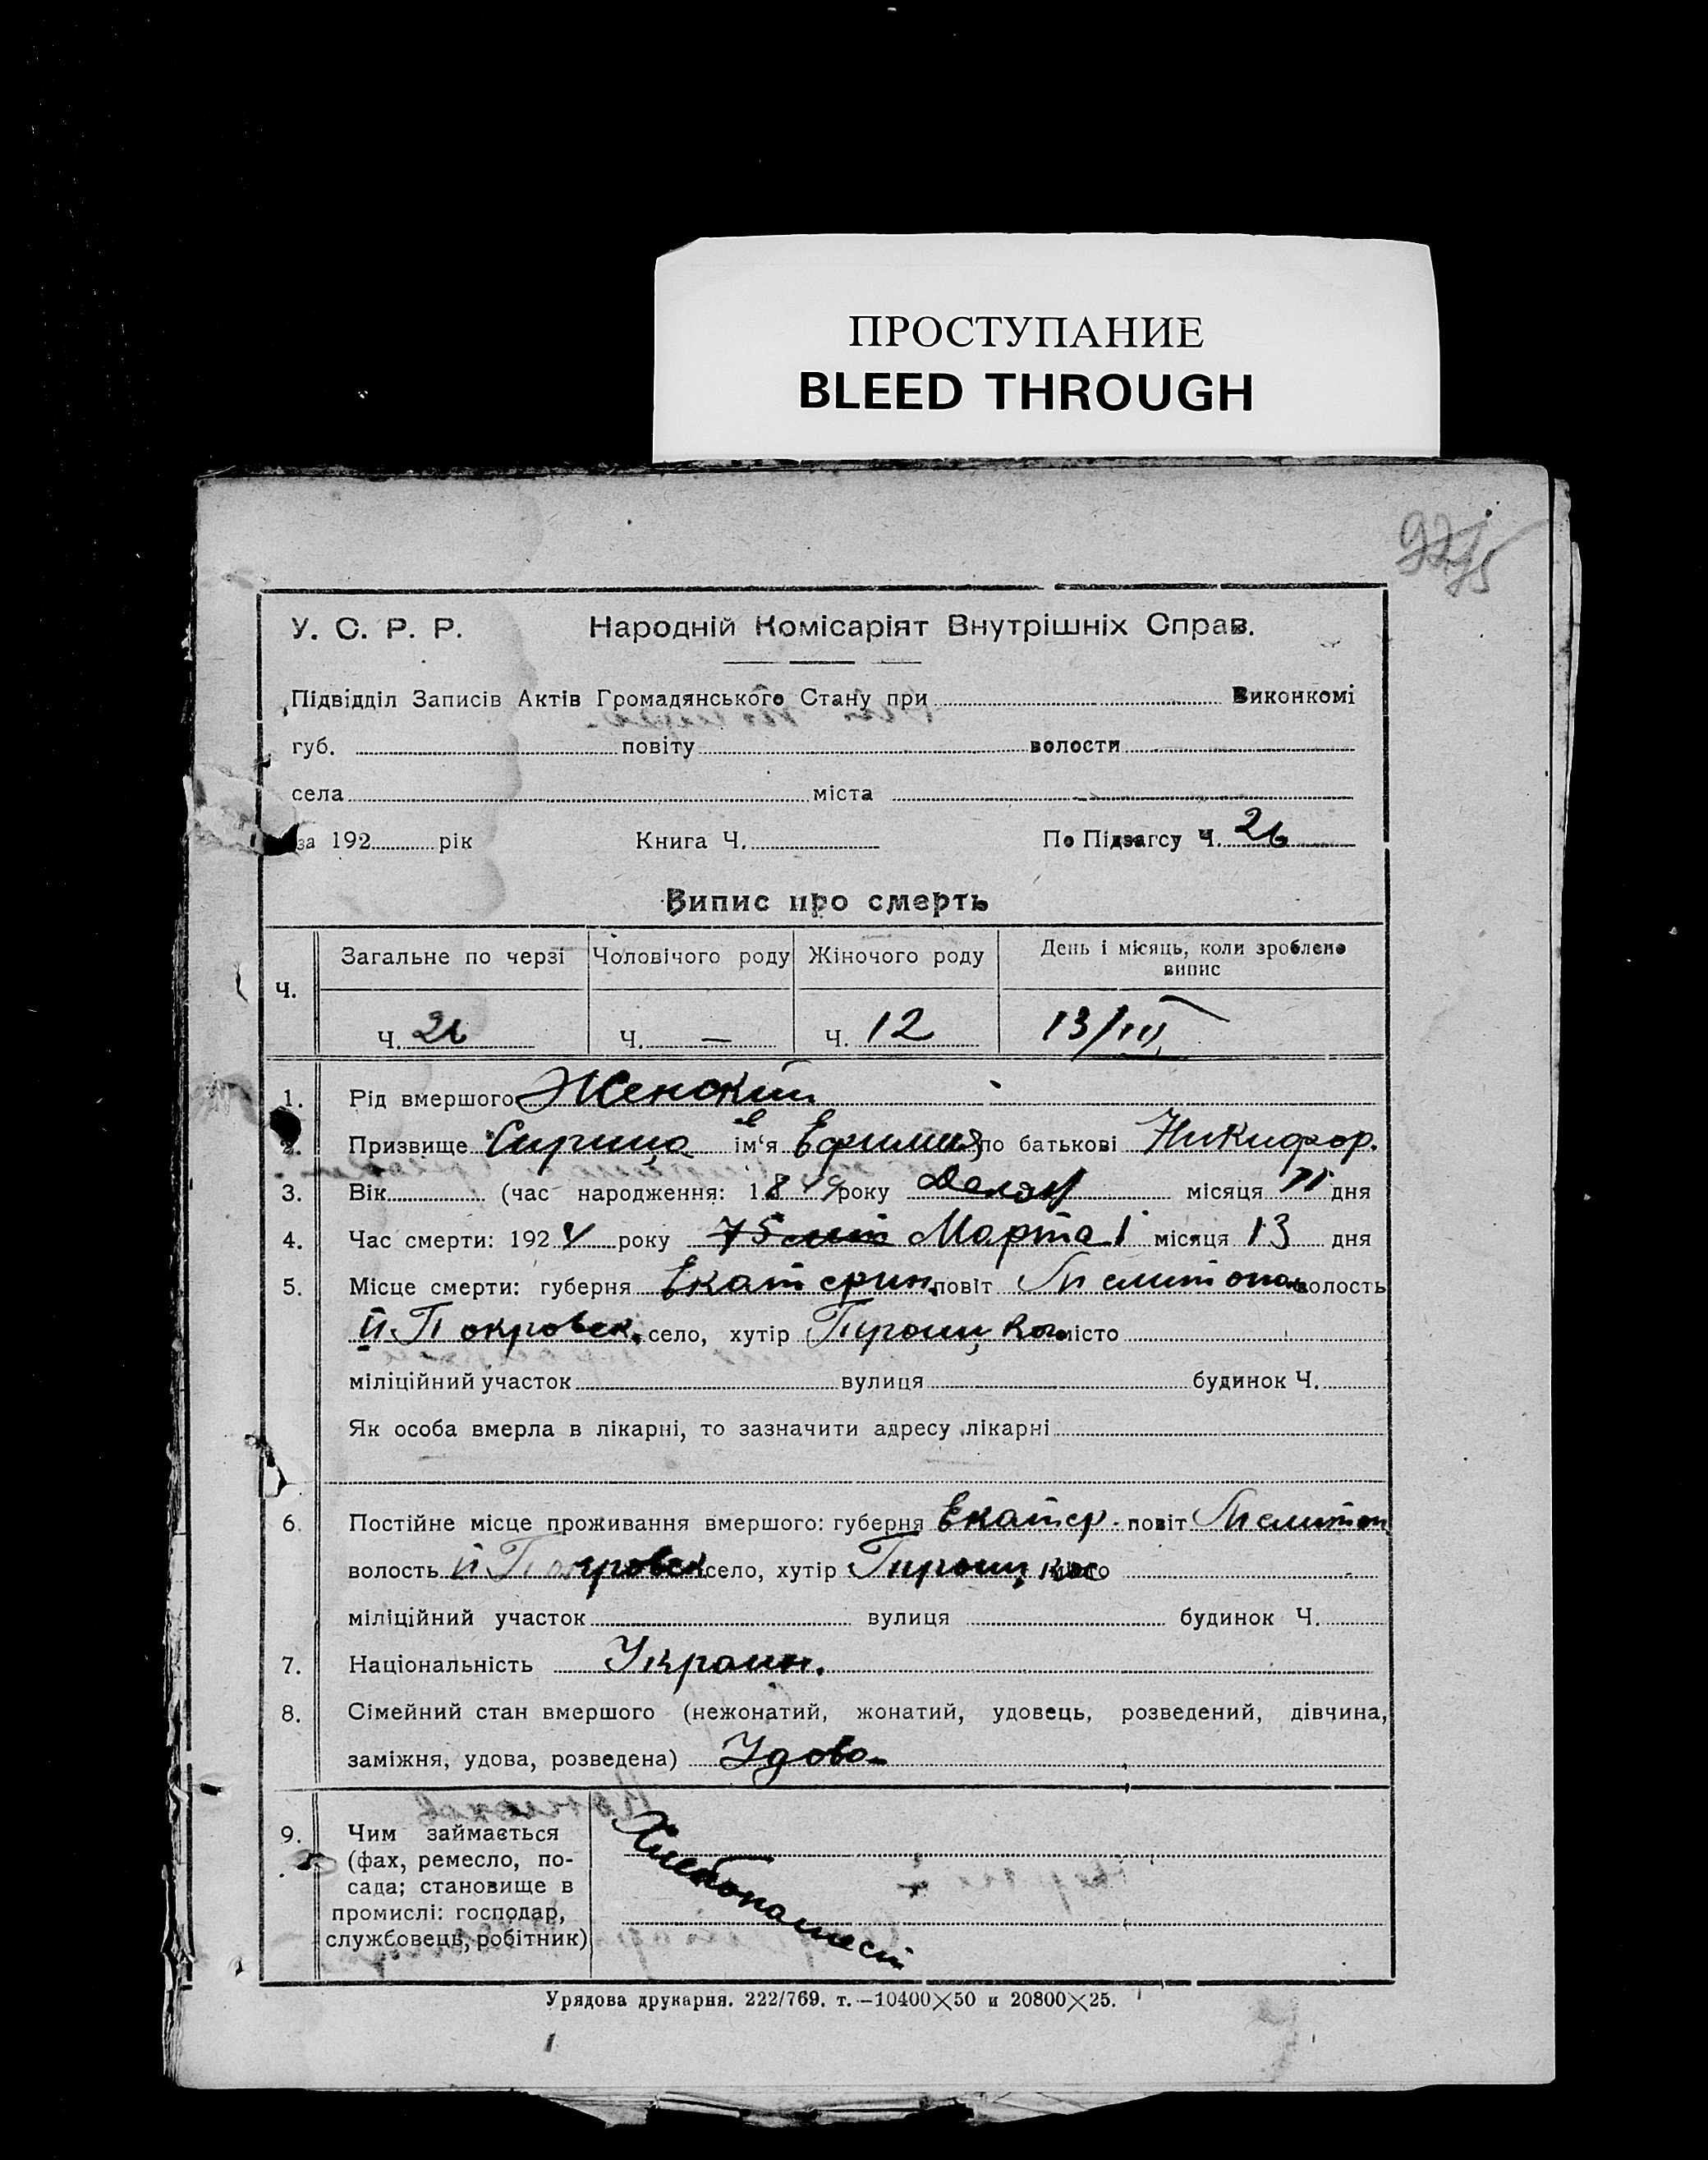 ПРОСТУПАНИЕ
BLEED THROUGH
У. С. Р. Р. Народній Комісаріят Внутрішніх Справ.
Підвідділ Записів Актів Громадянського Стану при Виконкомі
губ. повіту волости
села міста
за 192 рік Книга Ч. По Підзагсу Ч. 26
Випис про смерть
Ч. Загальне по черзі Чоловічого роду Жіночого роду День і місяць, коли зроблено випис
Ч. 26 Ч. — Ч. 12 13/III
1. Рід вмершого Женский
2. Призвище ім‘я Ефимия по батькові Никифор.
3. Вік (час народження: 18 9 року місяця дня
4. Час смерти: 1924 року 75 лет Марта місяця 13 дня
5. Місце смерти: губерня Екатерин. повіт Мелитопол волость
й Покровск. село, хутір місто
міліційний участок вулиця будинок Ч.
Як особа вмерла в лікарні, то зазначити адресу лікарні
6. Постійне місце проживання вмершого: губерня Екатер. повіт Мелитоп
волость й Покровск село, хутір місто
міліційний участок вулиця будинок Ч.
7. Національність Украин.
8. Сімейний стан вмершого (нежонатий, жонатий, удовець, розведений, дівчина,
заміжня, удова, розведена) Удова
9. Чим займається
(фах, ремесло, по-
сада; становище в
промислі: господар,
службовець, робітник)
Хлебопашест
Урядова друкарня. 222/769. т.—10400×50 и 20800×25.